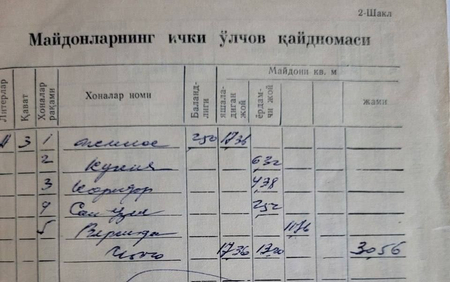 2-Шакл
Майдонларнинг ички ўлчов қайдномаси
Майдони кв. м
Литерлар
Қават
Хоналар рақами
Хоналар номи
Баланд-
лиги
яшала-
диган
жой
ёрдам-
чи жой
жами
3 1 жилое 250 1736
2 кухня
3 коридор 438
4 Сан узел 252
5 Веранда
Итого 1736 1320 3056